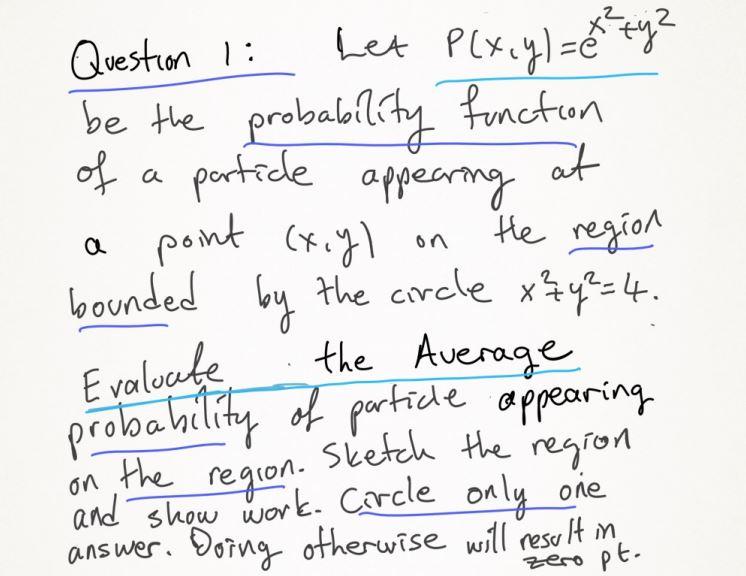 Question 1: Let P(x,y)=e^{x²+y²}
be the probability function
of a particle appearing at
a point (x,y) on the region
bounded by the circle x²+y²=4.
Evaluate the Average
probability of particle appearing
on the region. Sketch the region
and show work. Circle only one
answer. Doing otherwise will result in
zero pt.